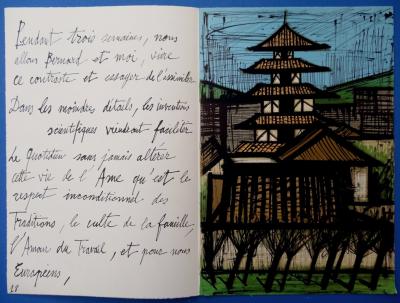 Pendant trois semaines, nous
allons Bernard et moi, vivre
ce contraste et essayer de l'assimiler
Dans les moindres détails, les inventions
scientifiques viendront faciliter
Le quotidien sans jamais altérer
cette vie de l'Ame qu'est le
respect inconditionnel des
Traditions, le culte de la famille,
l'Amour du Travail, et pour nous
Européens,
28